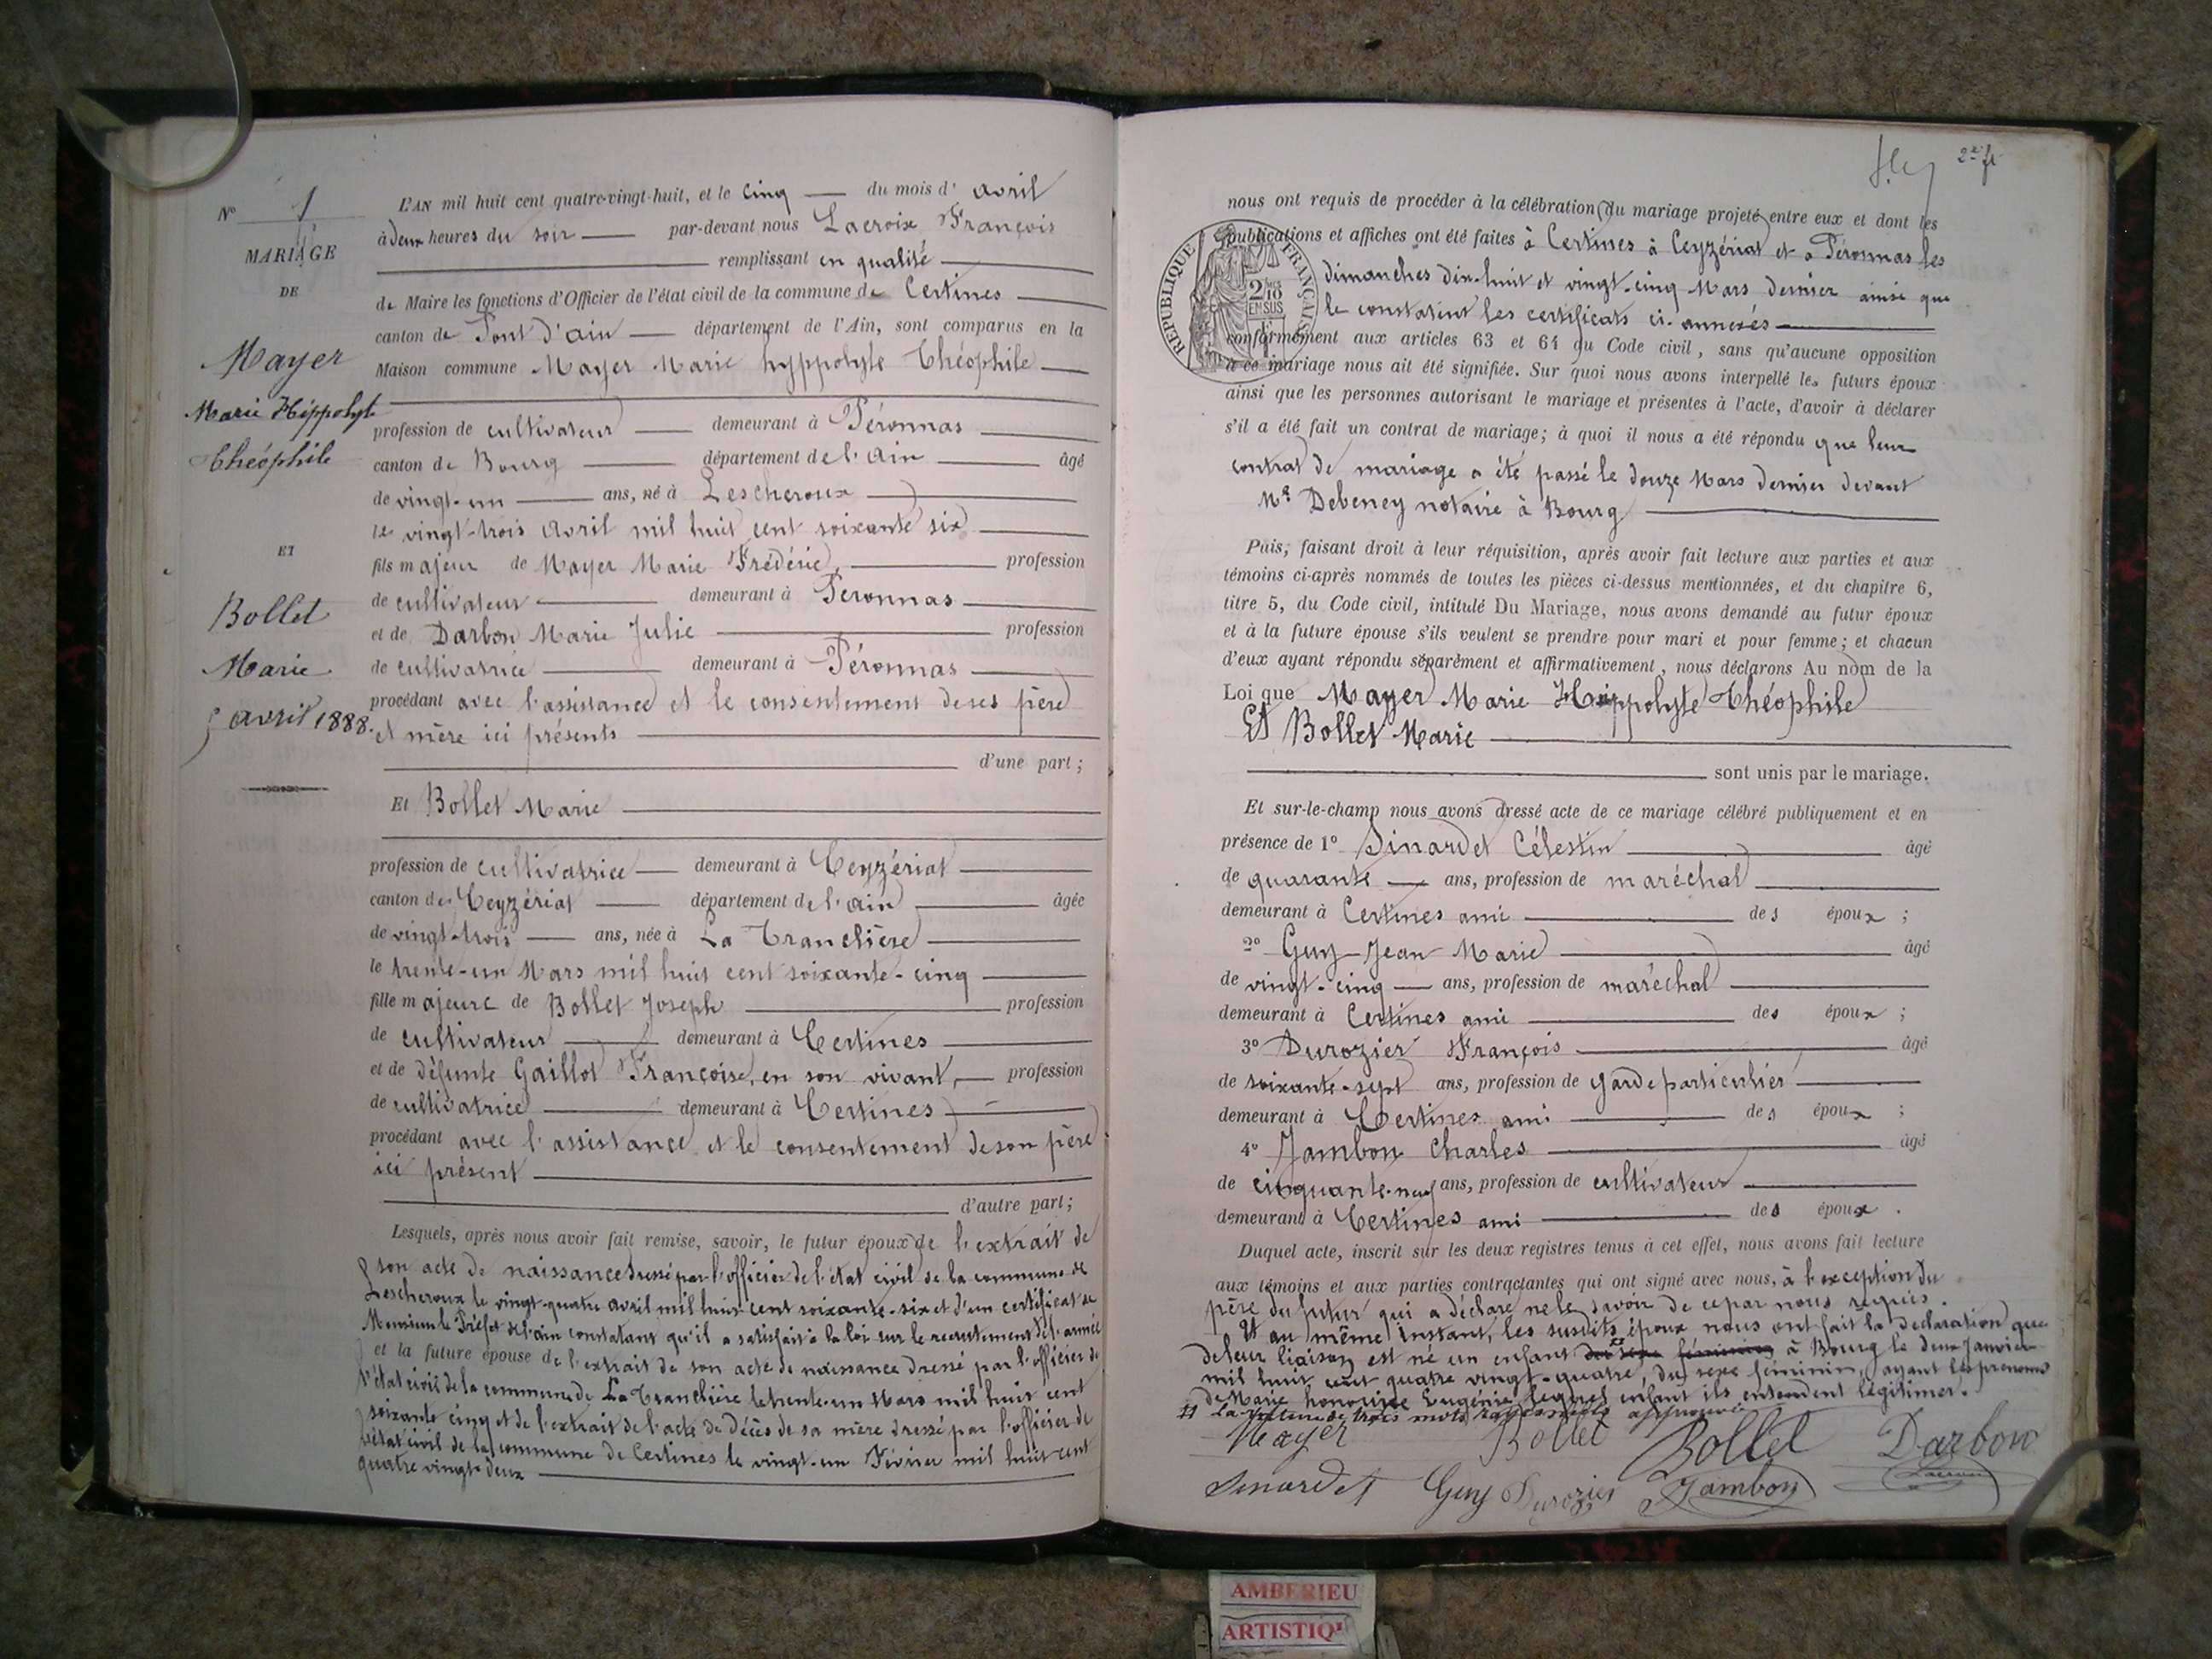 N° 1
MARIAGE
DE
Mayer
Marie Hippolyte
Théophile
ET
Bollet
Marie
5 avril 1888.
L'AN mil huit cent quatre-vingt-huit, et le cinq du mois d' avril
à deux heures du soir par-devant nous Lacroix François
remplissant en qualité
de Maire les fonctions d'Officier de l'état civil de la commune de Certines
canton de Pont d'ain département de l'Ain, sont comparus en la
Maison commune Mayer Marie hyppolyte Théophile
profession de cultivateur demeurant à Péronnas
canton de Bourg département de l'ain âgé
de vingt-un ans, né à Lescheroux
le vingt-trois avril mil huit cent soixante six
fils majeur de Mayer Marie Frédéric, profession
de cultivateur demeurant à Péronnas
et de Darbon Marie Julie profession
de cultivatrice demeurant à Péronnas
procédant avec l'assistance et le consentement de ses père
et mère ici présents
d'une part ;
Et Bollet Marie
profession de cultivatrice demeurant à Ceyzériat
canton de Ceyzériat département de l'ain âgée
de vingt-trois ans, née à La Tranclière
le trente-un Mars mil huit cent soixante-cinq
fille majeure de Bollet Joseph profession
de cultivateur demeurant à Certines
et de défunte Gaillot Françoise, en son vivant, profession
de cultivatrice demeurant à Certines
procédant avec l'assistance et le consentement de son père
ici présent
d'autre part ;
Lesquels, après nous avoir fait remise, savoir, le futur époux de l'extrait de
son acte de naissance dressé par l'officier de l'état civil de la commune de
Lescheroux le vingt-quatre avril mil huit cent soixante-six et d'un certificat de
Monsieur le Préfet de l'ain constatant qu'il a satisfait à la loi sur le recrutement de l'armée
et la future épouse de l'extrait de son acte de naissance dressé par l'officier de
l'état civil de la commune de La Tranclière le trente-un Mars mil huit cent
soixante cinq et de l'extrait de l'acte de décès de sa mère dressé par l'officier de
l'état civil de la commune de Certines le vingt-un Février mil huit cent
quatre vingt-deux
2e f
nous ont requis de procéder à la célébration du mariage projeté entre eux et dont les
publications et affiches ont été faites à Certines à Ceyzériat et à Péronnas les
dimanches dix-huit et vingt-cinq Mars dernier ainsi que
le constatent les certificats ci-annexés
REPUBLIQUE FRANÇAISE
2/10 EN SUS
conformément aux articles 63 et 64 du Code civil, sans qu'aucune opposition
à ce mariage nous ait été signifiée. Sur quoi nous avons interpellé les futurs époux
ainsi que les personnes autorisant le mariage et présentes à l'acte, d'avoir à déclarer
s'il a été fait un contrat de mariage; à quoi il nous a été répondu que leur
contrat de mariage a été passé le douze Mars dernier devant
Me Debeney notaire à Bourg
Puis, faisant droit à leur réquisition, après avoir fait lecture aux parties et aux
témoins ci-après nommés de toutes les pièces ci-dessus mentionnées, et du chapitre 6,
titre 5, du Code civil, intitulé Du Mariage, nous avons demandé au futur époux
et à la future épouse s'ils veulent se prendre pour mari et pour femme; et chacun
d'eux ayant répondu séparément et affirmativement, nous déclarons Au nom de la
Loi que Mayer Marie Hippolyte Théophile
Et Bollet Marie
sont unis par le mariage.
Et sur-le-champ nous avons dressé acte de ce mariage célébré publiquement et en
présence de 1° Sinardet Célestin âgé
de quarante ans, profession de maréchal
demeurant à Certines ami des époux ;
2° Guy Jean Marie âgé
de vingt-cinq ans, profession de maréchal
demeurant à Certines ami des époux ;
3° Durozier François âgé
de soixante-sept ans, profession de garde particulier
demeurant à Certines ami des époux ;
4° Jambon Charles âgé
de cinquante-neuf ans, profession de cultivateur
demeurant à Certines ami des époux .
Duquel acte, inscrit sur les deux registres tenus à cet effet, nous avons fait lecture
aux témoins et aux parties contractantes qui ont signé avec nous, à l'exception du
père du futur qui a déclaré ne le savoir de ce par nous requis.
Et au même instant, les susdits époux nous ont fait la déclaration que
de leur liaison est né un enfant du sexe féminin à Bourg le deux Janvier
mil huit cent quatre vingt-quatre, du sexe féminin, ayant les prénoms
de Marie honorine Eugénie, lequel enfant ils entendent légitimer.
La rature de trois mots rayés nuls approuvée
Mayer Bollet Bollet Darbon
Sinardet Guy Durozier Jambon Lacroix
AMBERIEU
ARTISTIQ